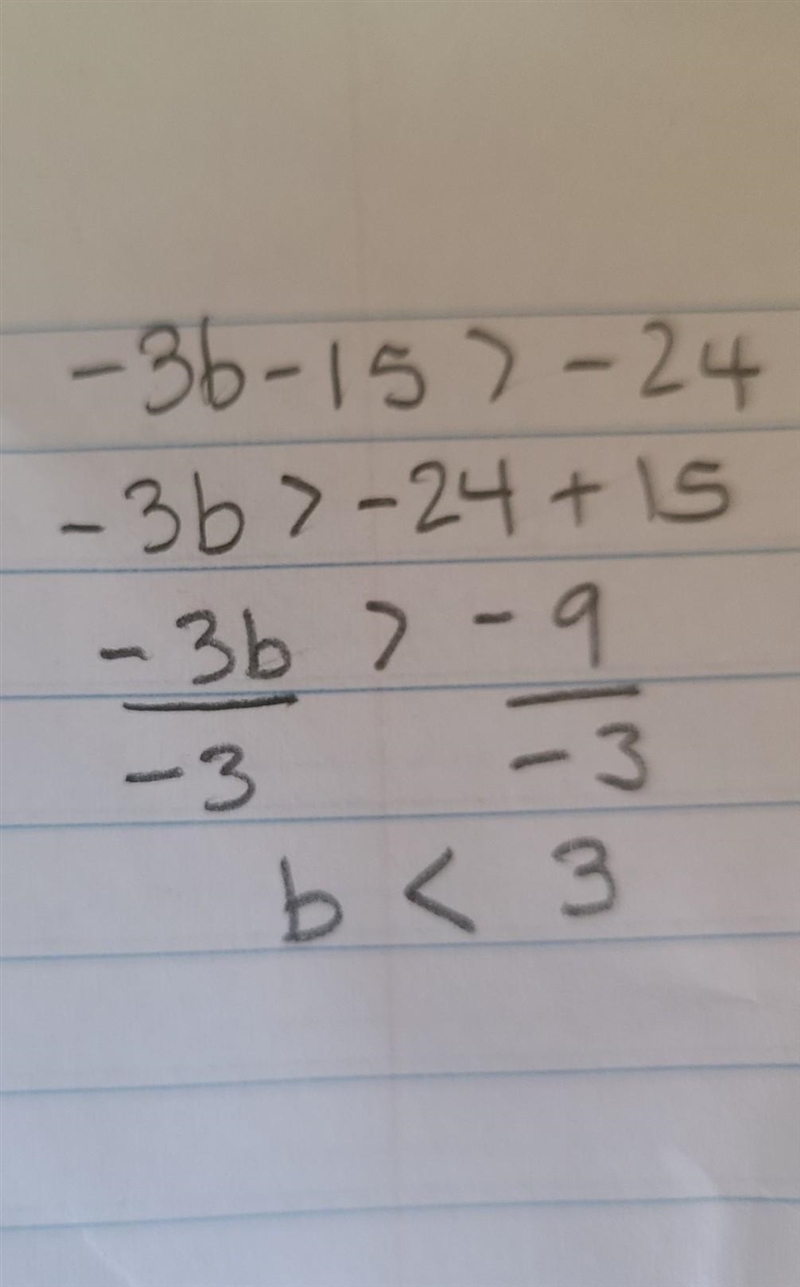 -3b-15 > -24
-3b > -24 + 15
-3b > -9
-3 -3
b < 3